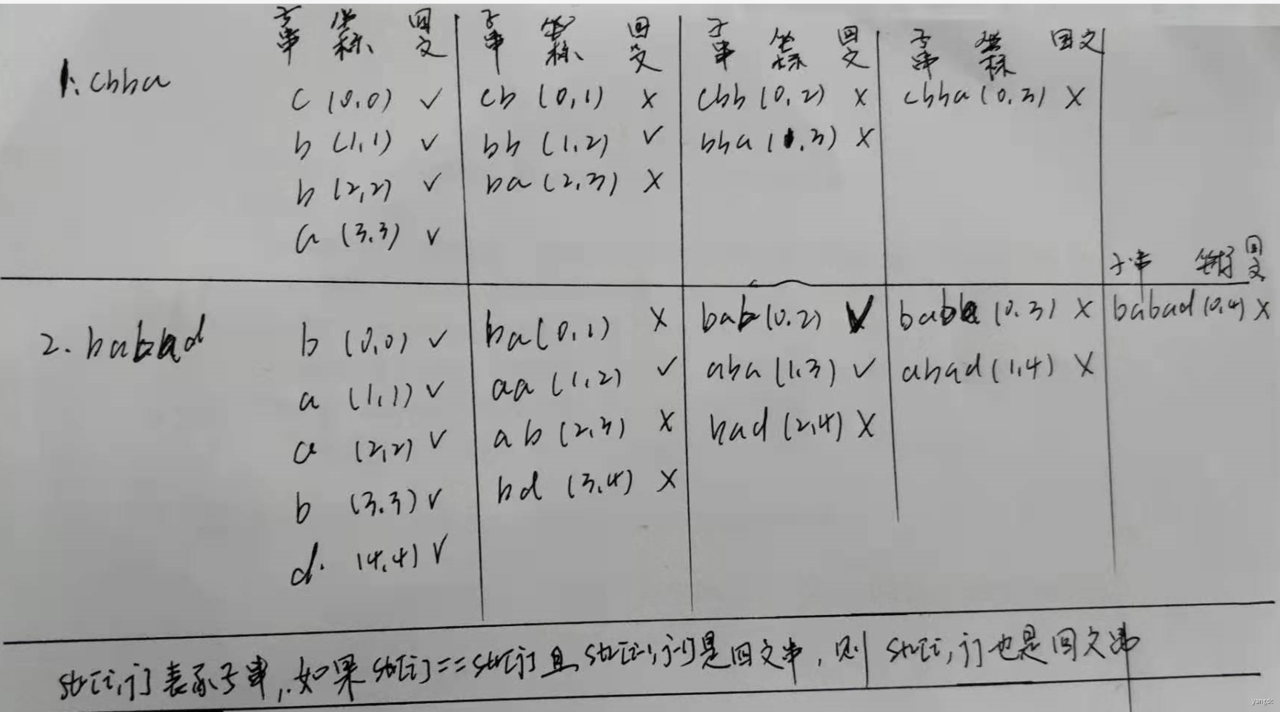 子串 坐标 回文 子串 坐标 回文 子串 坐标 回文 子串 坐标 回文
1. cbba
c (0,0) ✓ cb (0,1) × cbb (0,2) × cbba (0,3) ×
b (1,1) ✓ bb (1,2) ✓ bba (1,3) ×
b (2,2) ✓ ba (2,3) ×
a (3,3) ✓
子串 坐标 回文
2. babad b (0,0) ✓ ba (0,1) × bab (0,2) ✓ baba (0,3) × babad (0,4) ×
a (1,1) ✓ aa (1,2) ✓ aba (1,3) ✓ abad (1,4) ×
a (2,2) ✓ ab (2,3) × bad (2,4) ×
b (3,3) ✓ bd (3,4) ×
d. (4,4) ✓
str[i,j]表示子串,如果str[i]==str[j]且str[i-1,j-1]是回文串,则str[i,j]也是回文串
yangdc